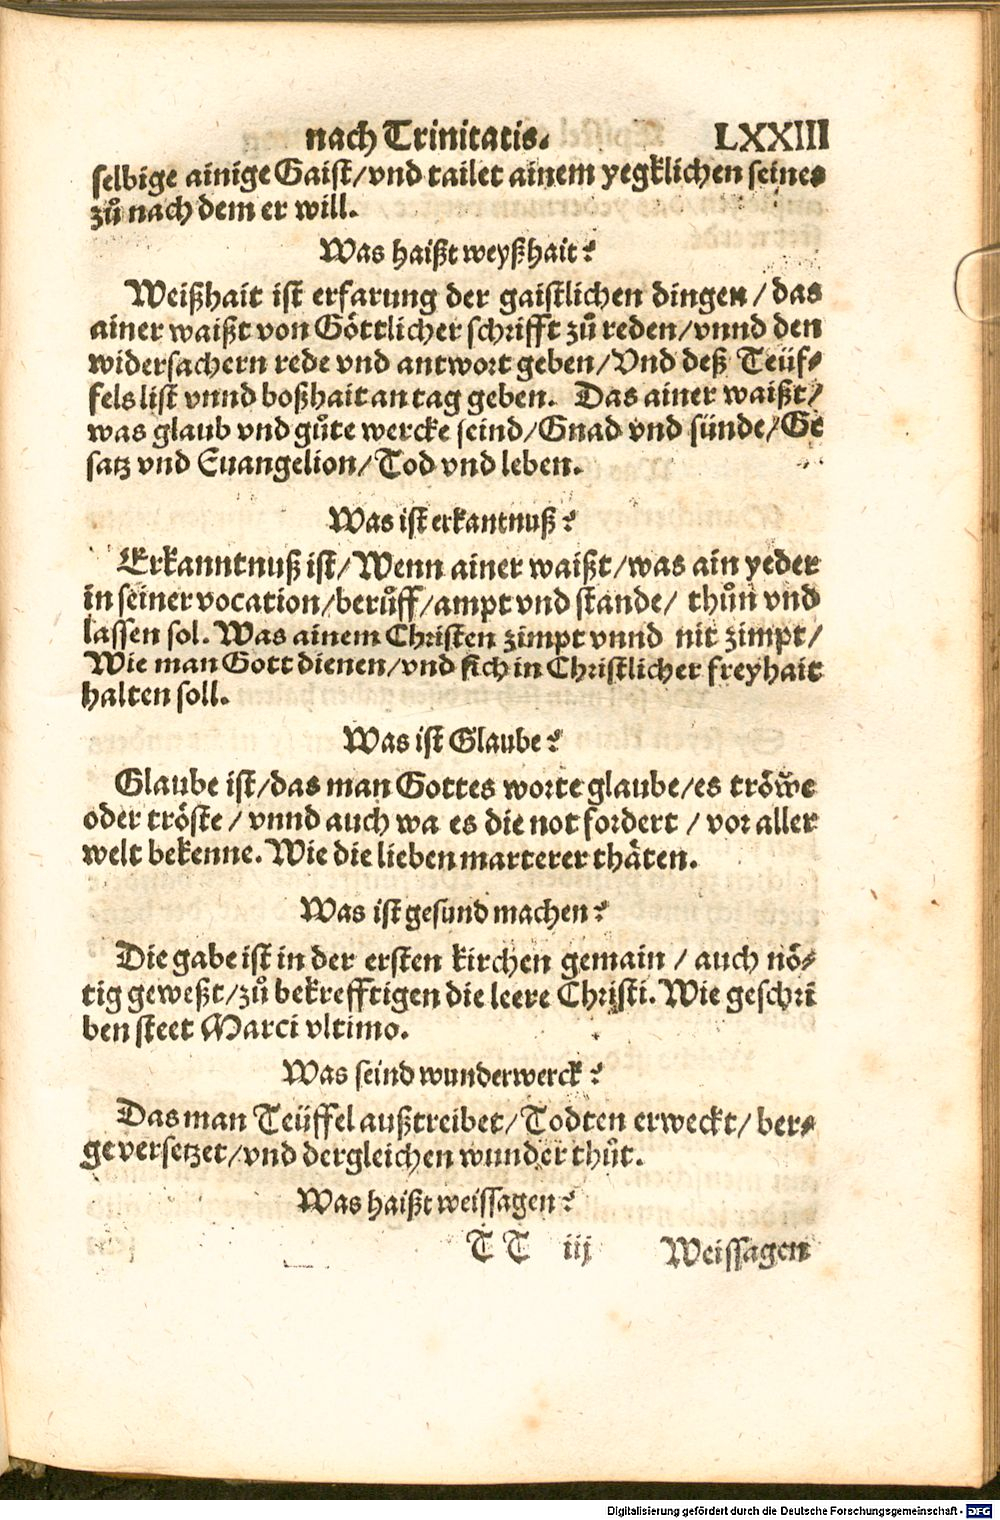 nach Trinitatis. LXXIII
selbige ainige Gaist/vnd tailet ainem yegklichen seines
zů nach dem er will.
Was haißt weyßhait?
Weißhait ist erfarung der gaistlichen dingen/das
ainer waißt von Göttlicher schrifft zů reden/vnnd den
widersachern rede vnd antwort geben/Vnd deß Teüf-
fels list vnnd boßhait an tag geben. Das ainer waißt/
was glaub vnd gůte wercke seind/Gnad vnd sünde/Ge
satz vnd Euangelion/Tod vnd leben.
Was ist erkantnuß?
Erkanntnuß ist/Wenn ainer waißt/was ain yeder
in seiner vocation/berůff/ampt vnd stande/ thůn vnd
lassen sol. Was ainem Christen zimpt vnnd nit zimpt/
Wie man Gott dienen/vnd sich in Christlicher freyhait
halten soll.
Was ist Glaube?
Glaube ist/das man Gottes worte glaube/es tröwe
oder tröste/vnnd auch wa es die not fordert/vor aller
welt bekenne. Wie die lieben marterer thäten.
Was ist gesund machen?
Die gabe ist in der ersten kirchen gemain/auch nö-
tig geweßt/zů bekrefftigen die leere Christi. Wie geschri
ben steet Marci vltimo.
Was seind wunderwerck?
Das man Teüffel außtreibet/Todten erweckt/ber-
ge versetzet/vnd dergleichen wunder thůt.
Was haißt weissagen?
TT iij Weissagen
Digitalisierung gefördert durch die Deutsche Forschungsgemeinschaft - DFG